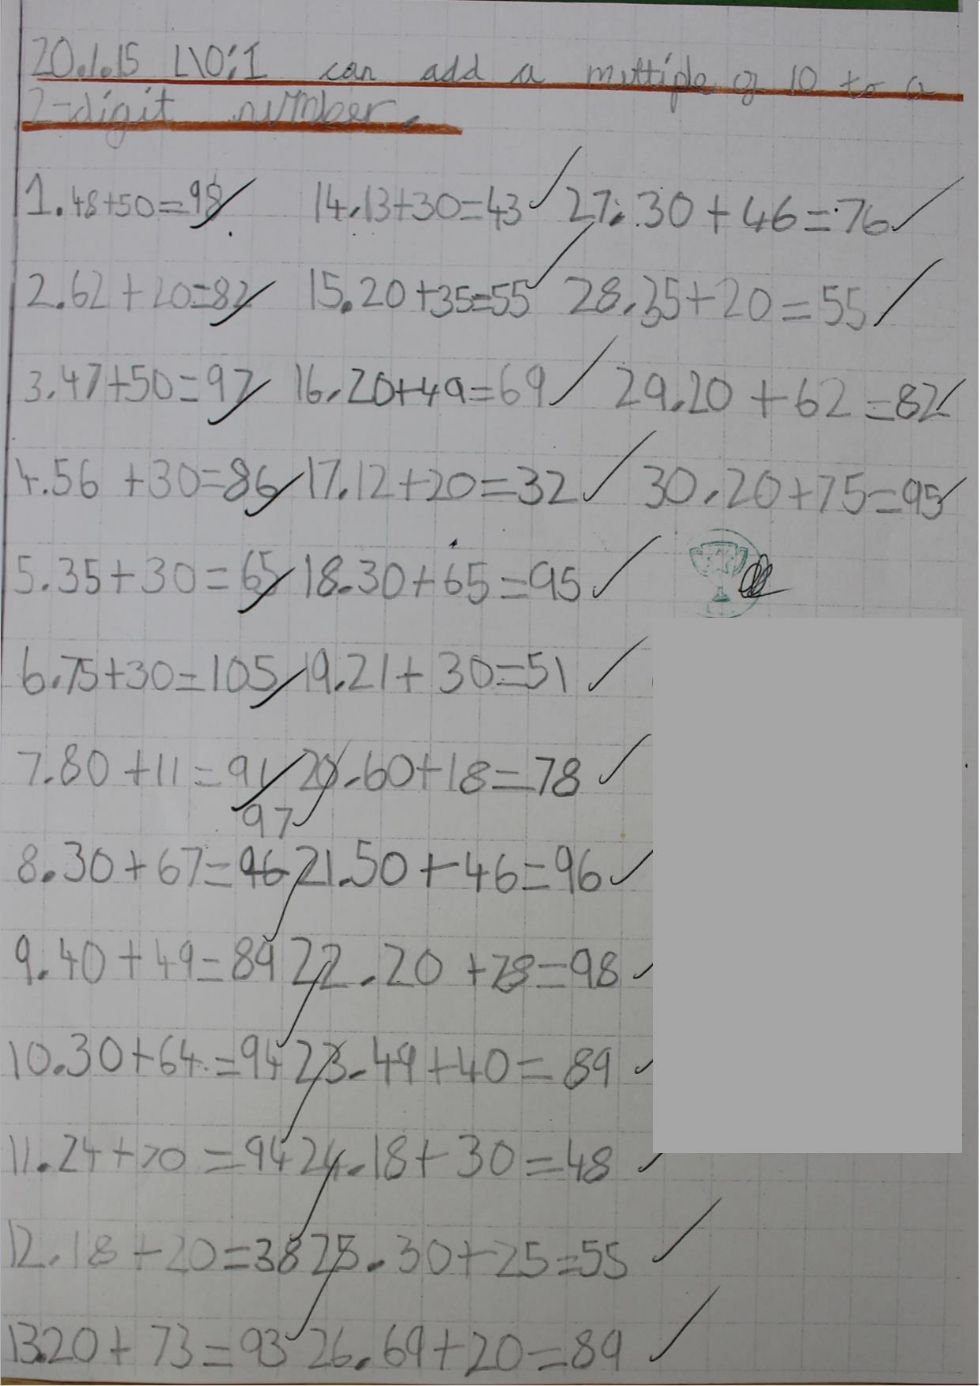 20.1.15 L\O: I can add a multiple of 10 to a
2-digit number.
1. 48+50=98
2. 62+20=82
3. 47+50=97
4. 56+30=86
5. 35+30=65
6. 75+30=105
7. 80+11=91
97
8. 30+67=96
9. 40+49=89
10. 30+64=94
11. 24+70=94
12. 18+20=38
13. 20+73=93
14. 13+30=43
15. 20+35=55
16. 20+49=69
17. 12+20=32
18. 30+65=95
19. 21+30=51
20. 60+18=78
21. 50+46=96
22. 20+78=98
23. 49+40=89
24. 18+30=48
25. 30+25=55
26. 69+20=89
27. 30+46=76
28. 35+20=55
29. 20+62=82
30. 20+75=95